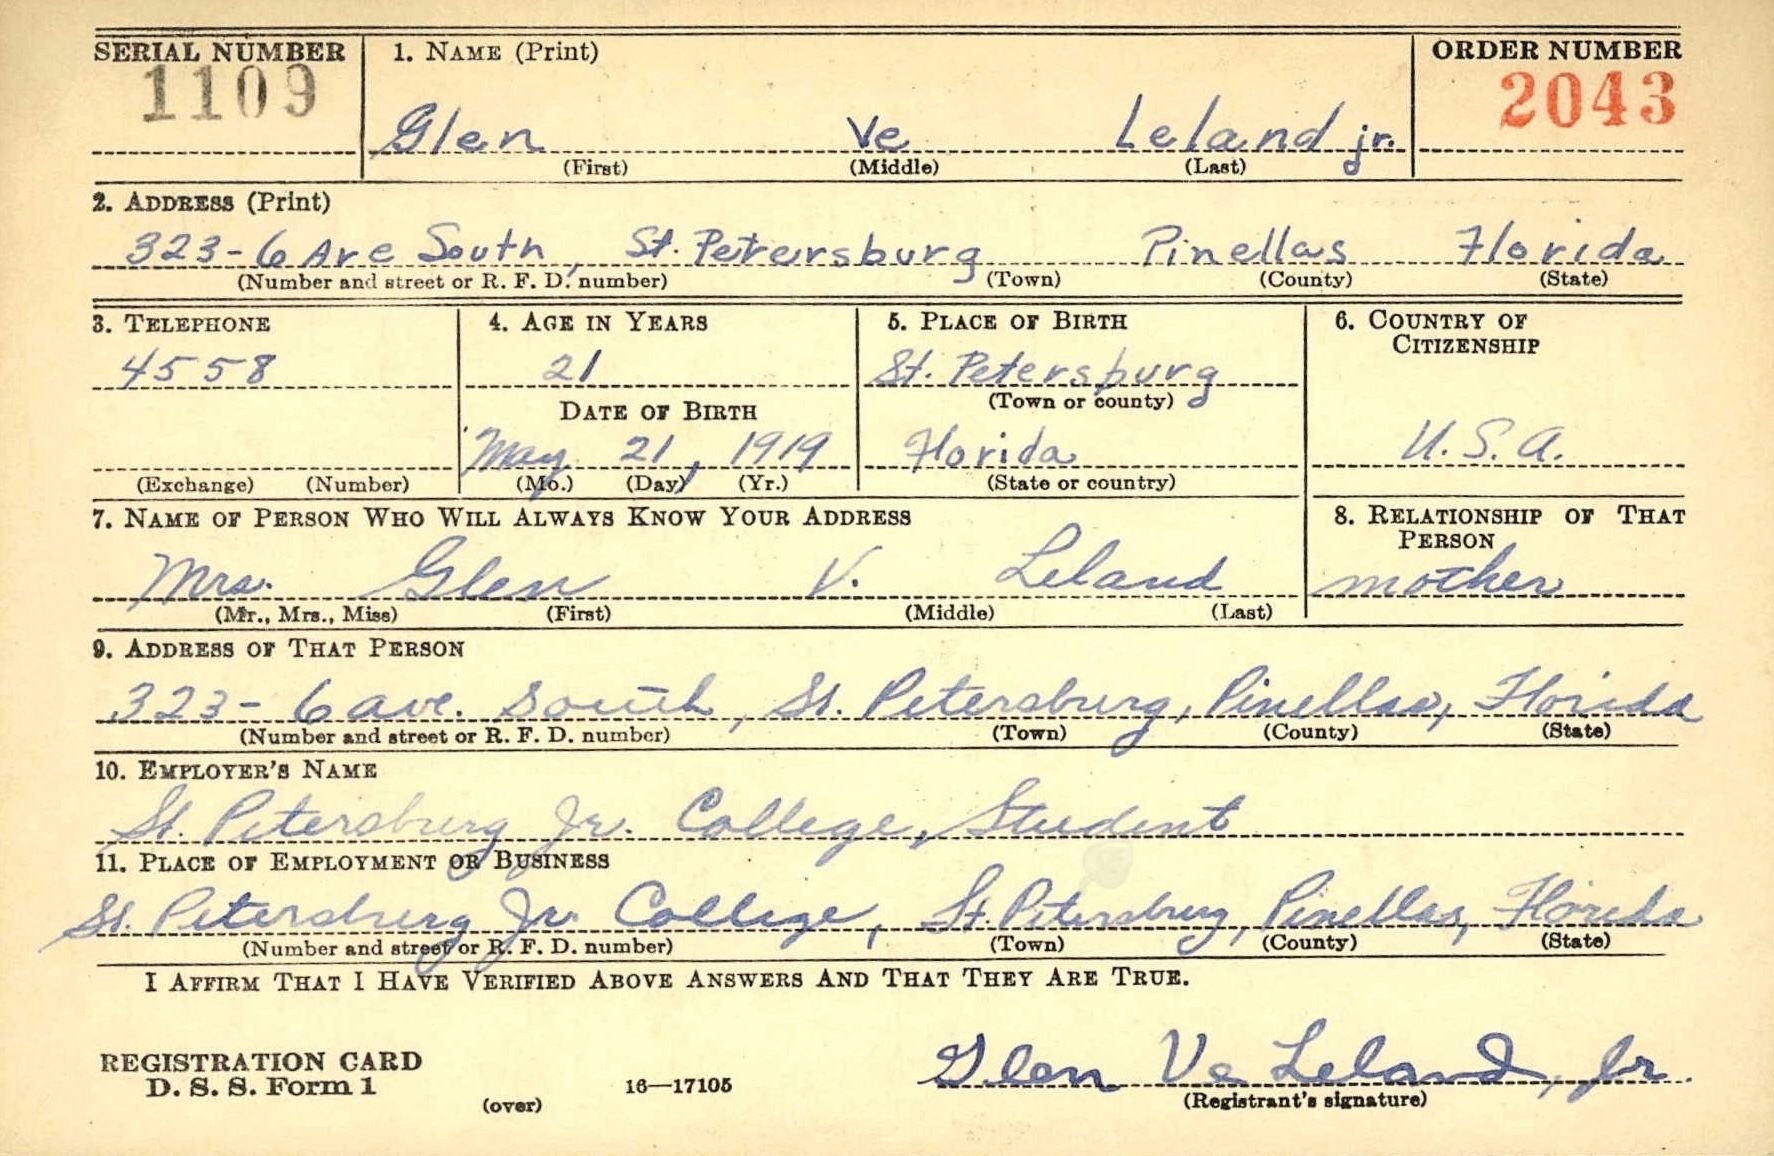 SERIAL NUMBER 1. NAME (Print) ORDER NUMBER
1109 Glen Ve Leland jr. 2043
(First) (Middle) (Last)
2. ADDRESS (Print)
323-6 Ave South, St. Petersburg Pinellas Florida
(Number and street or R. F. D. number) (Town) (County) (State)
3. TELEPHONE 4. AGE IN YEARS 5. PLACE OF BIRTH 6. COUNTRY OF CITIZENSHIP
4558 21 St. Petersburg
(Town or county)
DATE OF BIRTH
May 21, 1919 Florida U.S.A.
(Exchange) (Number) (Mo.) (Day) (Yr.) (State or country)
7. NAME OF PERSON WHO WILL ALWAYS KNOW YOUR ADDRESS 8. RELATIONSHIP OF THAT PERSON
Mrs. Glen V. Leland mother
(Mr., Mrs., Miss) (First) (Middle) (Last)
9. ADDRESS OF THAT PERSON
323-6 ave. South, St. Petersburg, Pinellas, Florida
(Number and street or R. F. D. number) (Town) (County) (State)
10. EMPLOYER'S NAME
St. Petersburg Jr. College, Student
11. PLACE OF EMPLOYMENT OR BUSINESS
St. Petersburg Jr. College, St. Petersburg, Pinellas, Florida
(Number and street or R. F. D. number) (Town) (County) (State)
I AFFIRM THAT I HAVE VERIFIED ABOVE ANSWERS AND THAT THEY ARE TRUE.
REGISTRATION CARD
D. S. S. Form 1 (over) 16—17105 Glen Ve Leland, Jr.
(Registrant's signature)